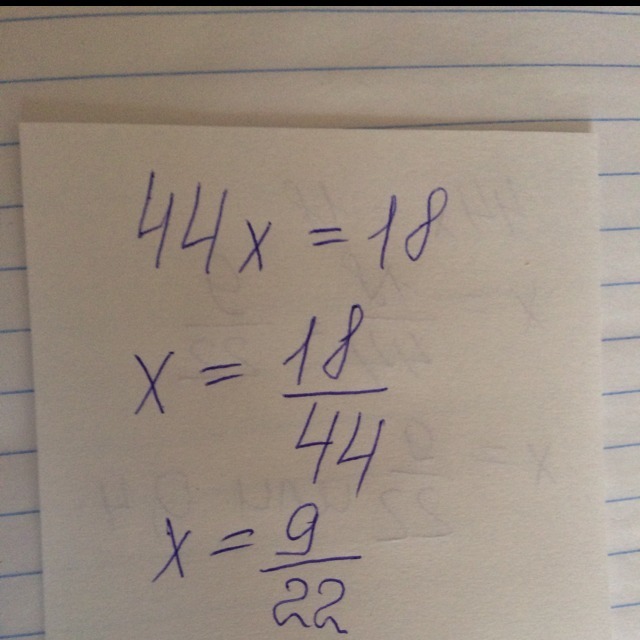 44x = 18
x = 18/44
x = 9/22